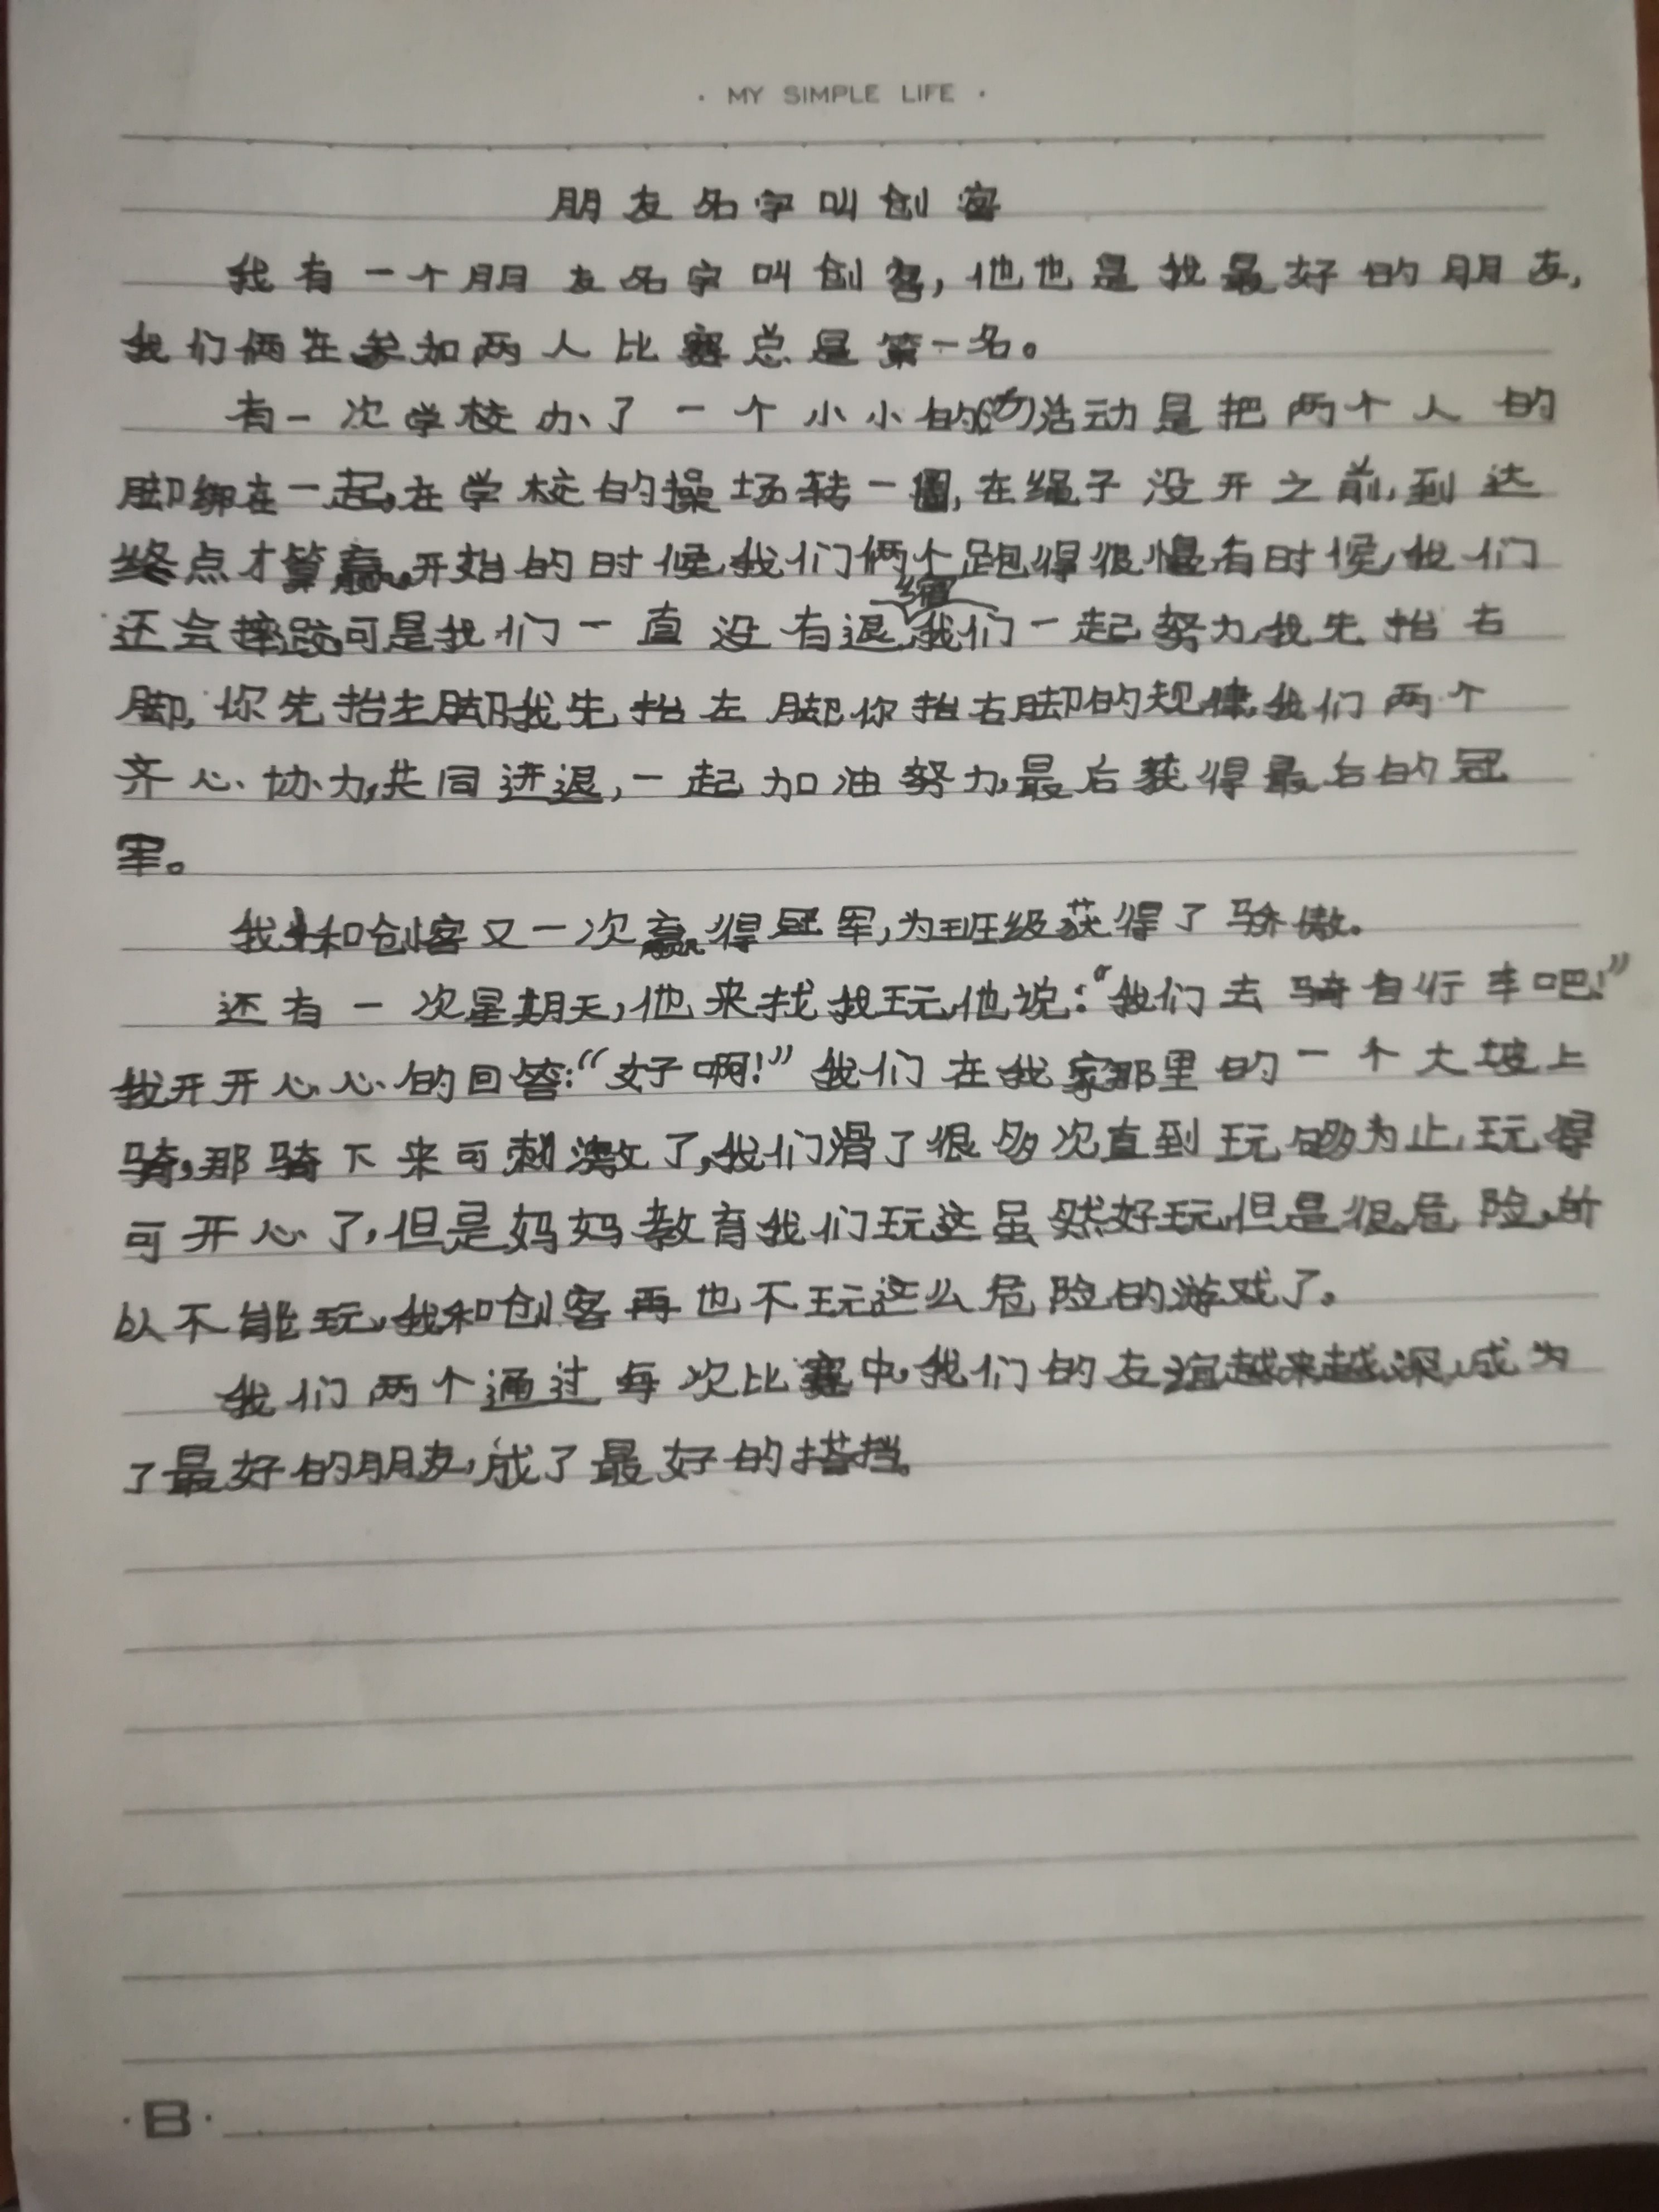 · MY SIMPLE LIFE ·
朋友名字叫创客
我有一个朋友名字叫创客,他也是我最好的朋友,
我们俩在参加两人比赛总是第一名。
有一次学校办了一个小小的活动是把两个人的
脚绑在一起,在学校的操场转一圈,在绳子没开之前,到达
终点才算赢。开始的时候,我们俩个跑得很慢有时候,我们
还会摔跤,可是我们一直没有退缩,我们一起努力,我先抬右
脚,你先抬左脚,我先抬左脚你抬右脚的规律,我们两个
齐心协力,共同进退,一起加油努力,最后获得最后的冠
军。
我和创客又一次赢得冠军,为班级获得了骄傲。
还有一次星期天,他来找我玩,他说:“我们去骑自行车吧!”
我开开心心的回答:“好啊!”我们在我家那里的一个大坡上
骑,那骑下来可刺激了,我们滑了很多次直到玩够为止,玩得
可开心了,但是妈妈教育我们玩这虽然好玩,但是很危险,所
以不能玩,我和创客再也不玩这么危险的游戏了。
我们两个通过每次比赛中,我们的友谊越来越深,成为
了最好的朋友,成了最好的搭挡。
·B·